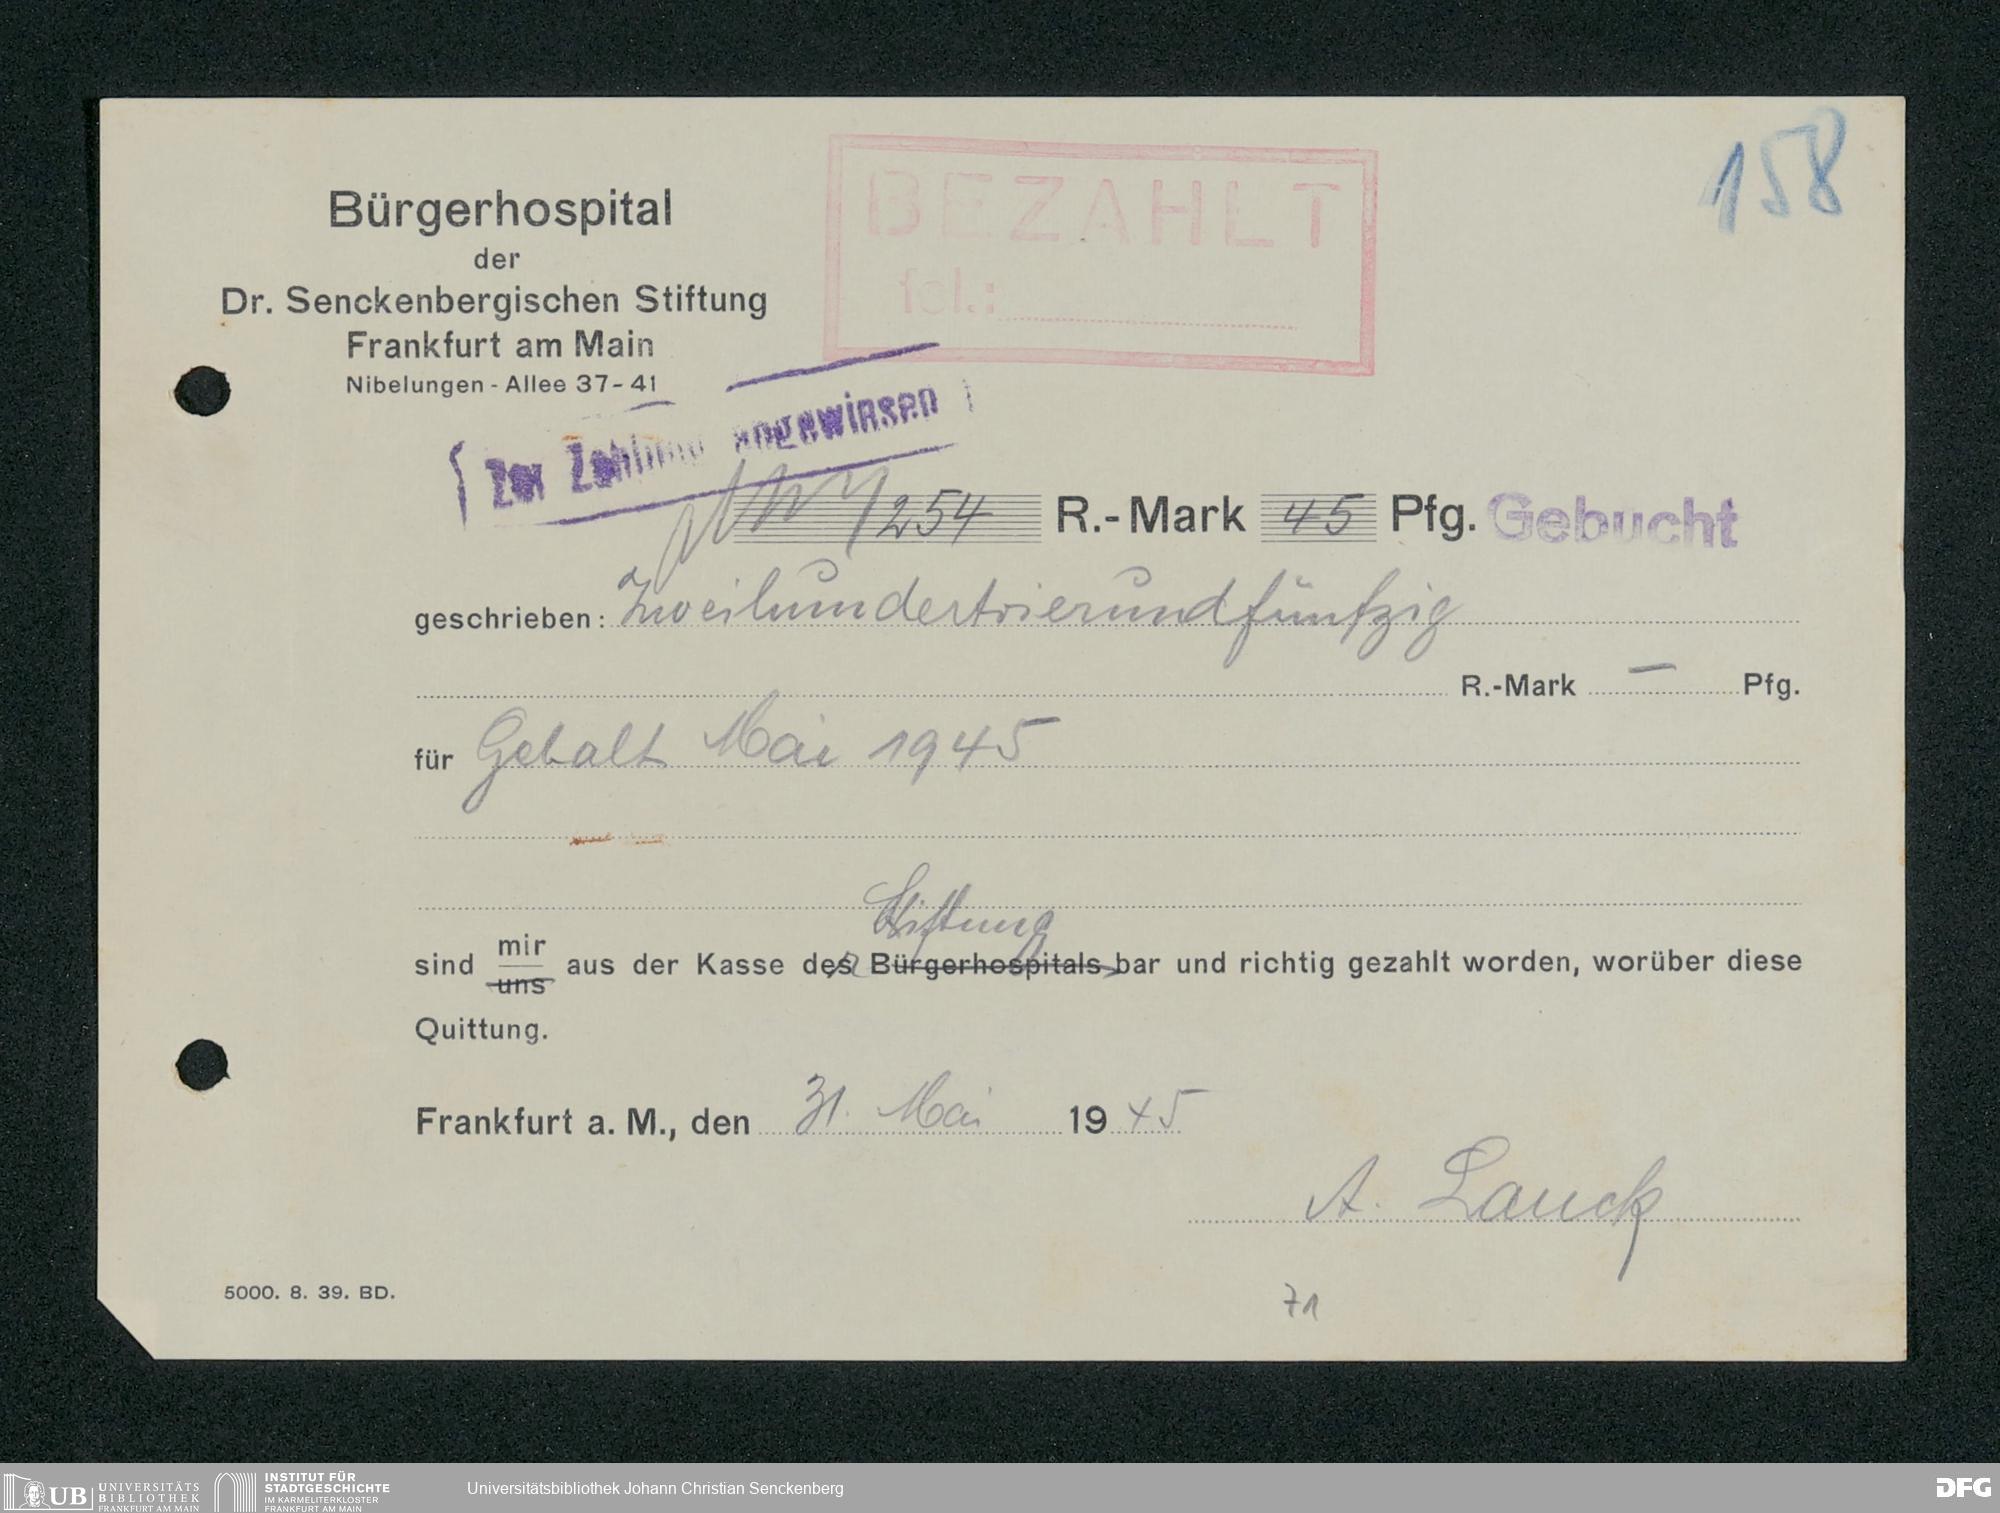 158
BEZAHLT
fol.:
Bürgerhospital
der
Dr. Senckenbergischen Stiftung
Frankfurt am Main
Nibelungen-Allee 37-41
Zur Zahlung angewiesen
254 R.-Mark 45 Pfg. Gebucht
geschrieben: Zweihundertvierundfünfzig
R.-Mark — Pfg.
für Gehalt Mai 1945
Stiftung
sind mir aus der Kasse des Bürgerhospitals bar und richtig gezahlt worden, worüber diese
uns
Quittung.
Frankfurt a. M., den 31. Mai 1945
A. Lauck
71
5000. 8. 39. BD.
UB UNIVERSITÄTS
BIBLIOTHEK
FRANKFURT AM MAIN
INSTITUT FÜR
STADTGESCHICHTE
IM KARMELITERKLOSTER
FRANKFURT AM MAIN
Universitätsbibliothek Johann Christian Senckenberg
DFG